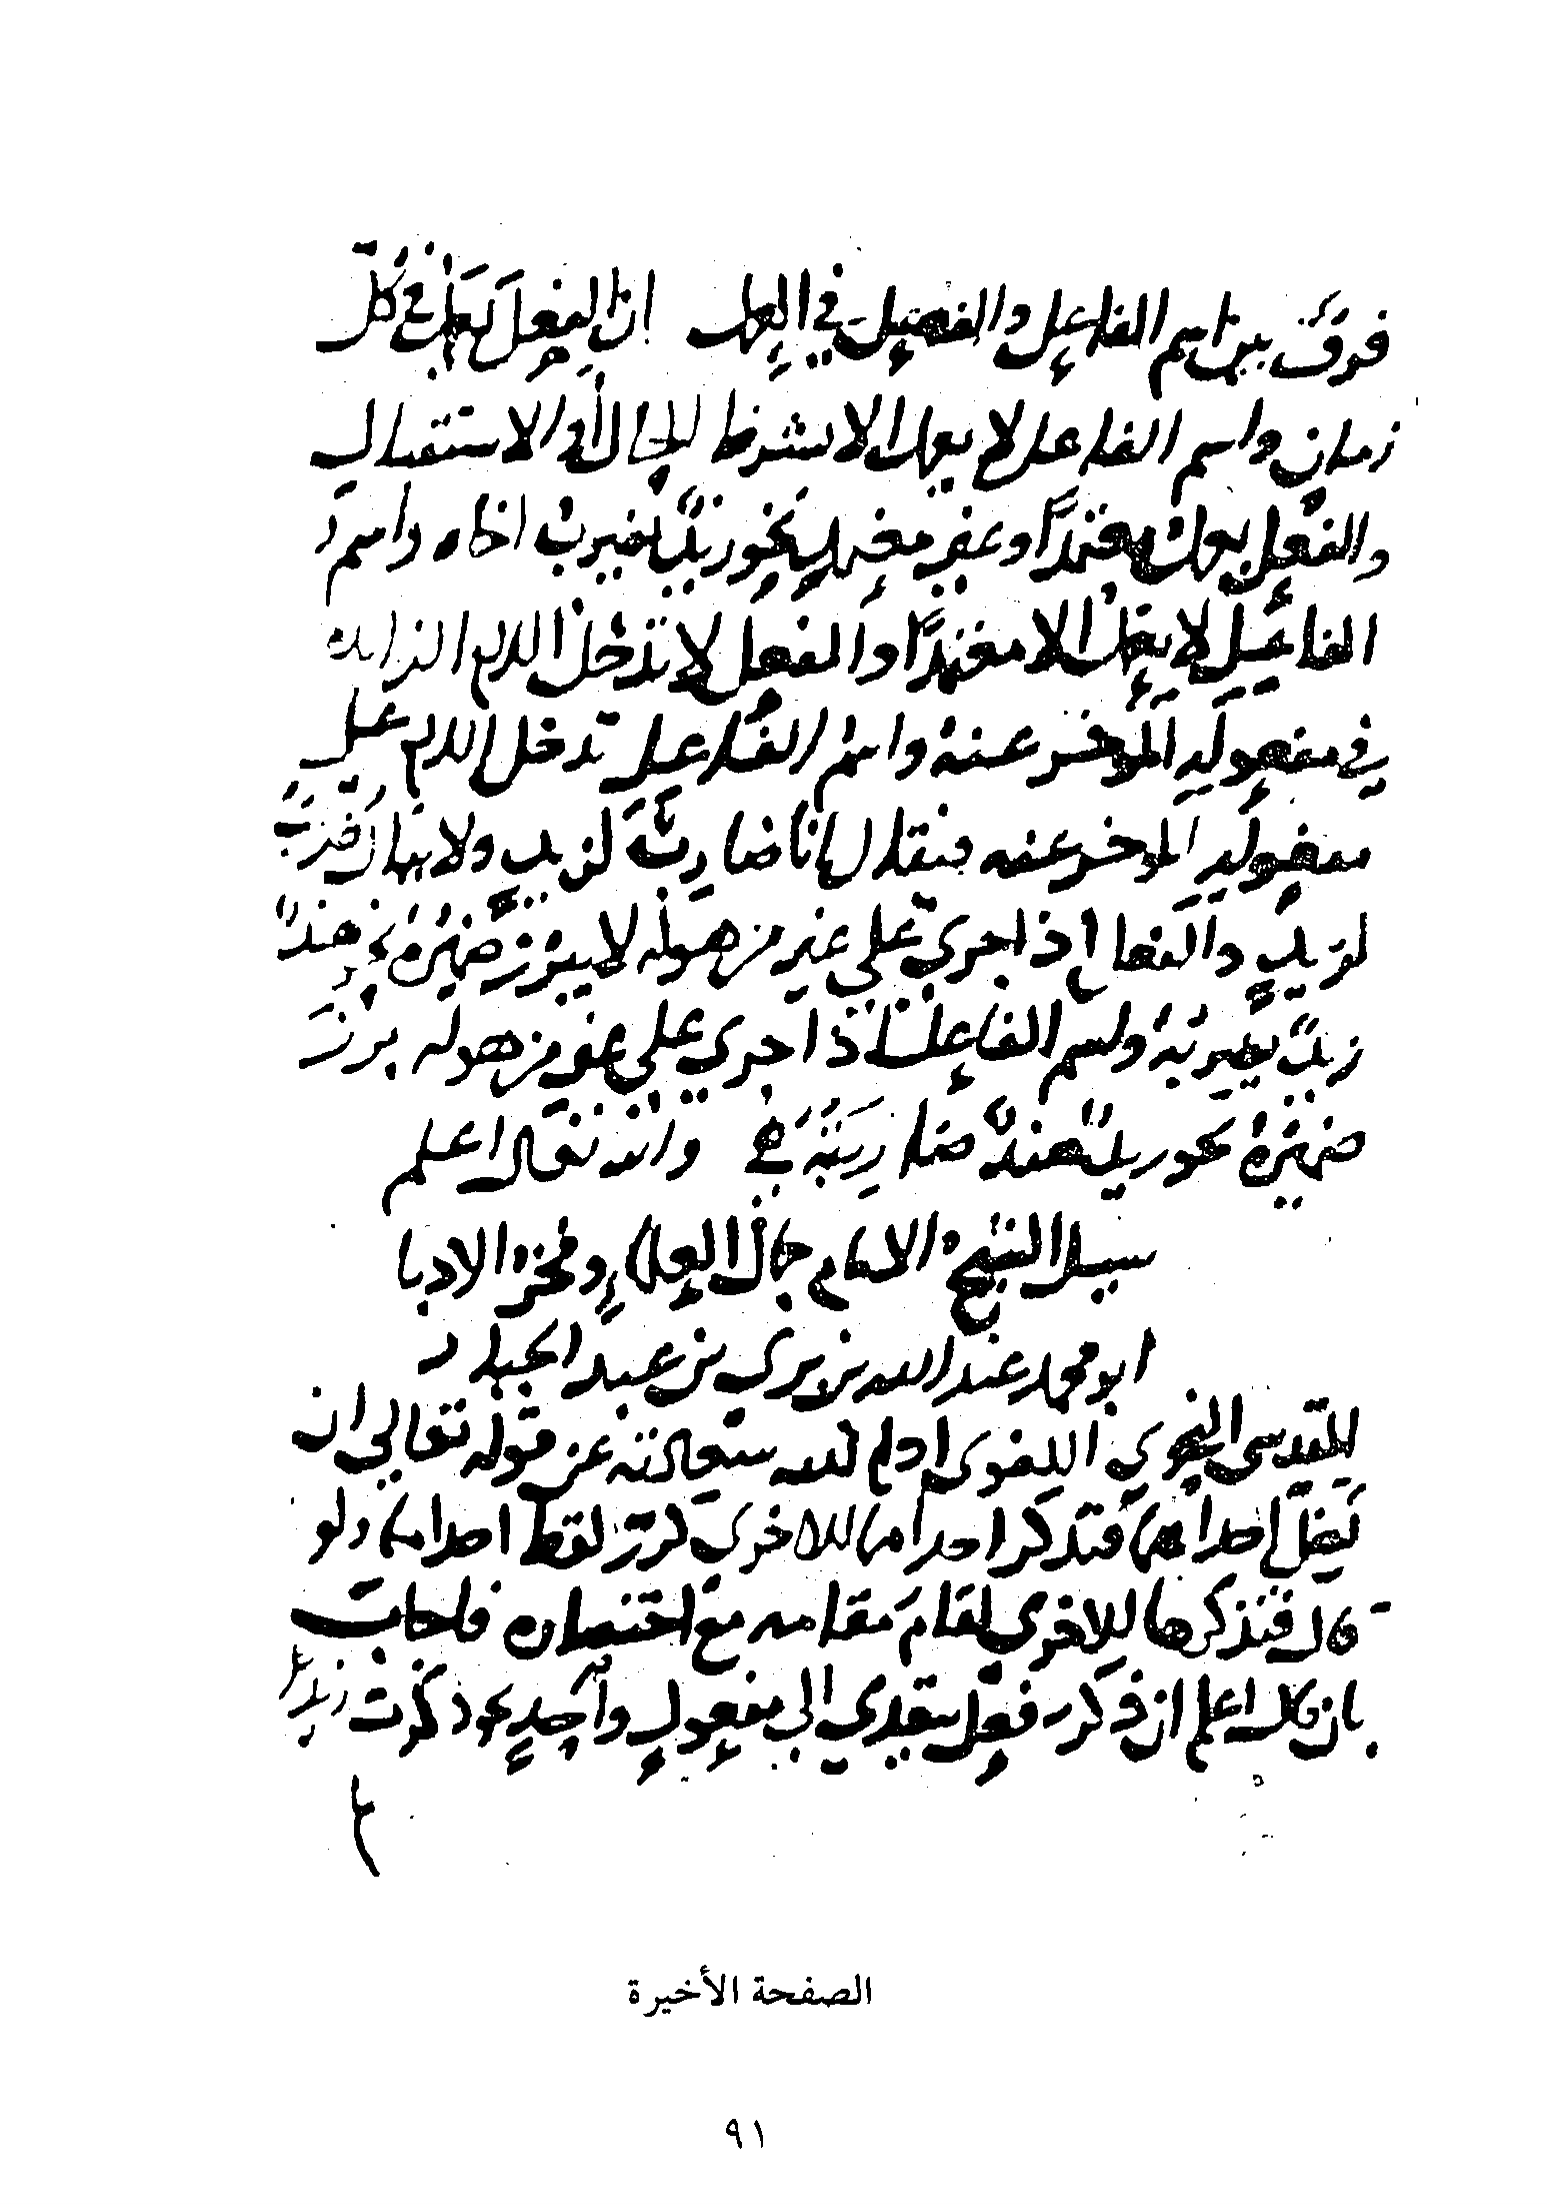 فرق بين اسم الفاعل والفعل في العمل ان الفعل يعمل في كل
زمان واسم الفاعل لا يعمل الا بشرط الحال أو الاستقبال
والفعل يعمل معتمدًا وغير معتمدٍ نحو زيدٌ يضرب اخاه واسم
الفاعل لا يعمل الا معتمدًا والفعل لا تدخل اللام الزايده
في مفعولِهِ المؤخر عنه واسم الفاعل تدخل اللام على
مفعولِهِ المؤخر عنه فيقال انا ضاربٌ لزيدٍ ولا يقال ضربتُ
لزيدٍ والفعل اذا جرى على غير من هو له لا يبرز ضميرُهُ نحو هندٌ
زيدٌ تضربُهُ واسم الفاعل اذا جرى على غير من هو له برز
ضميرُهُ نحو زيدٌ هندٌ ضاربَتُهُ هي والله تعالى اعلم
سيل الشيخ الامام جمال العلماءِ وفخر الادبا
ابو محمد عبد الله بن بري بن عبد الجبار
المقدسي النحوي اللغوي ادام الله سعادته عن قوله تعالى ان
تضل احداهما فتذكر احداهما الاخرى لم كرر لفظ احداهما ولو
قال فتذكرها الاخرى لقام مقامه مع اختصاره فاجاب
بان قال اعلم ان ذكر فعل يتعدي الى مفعولٍ واحدٍ نحو ذكرت زيدًا
الصفحة الأخيرة
٩١